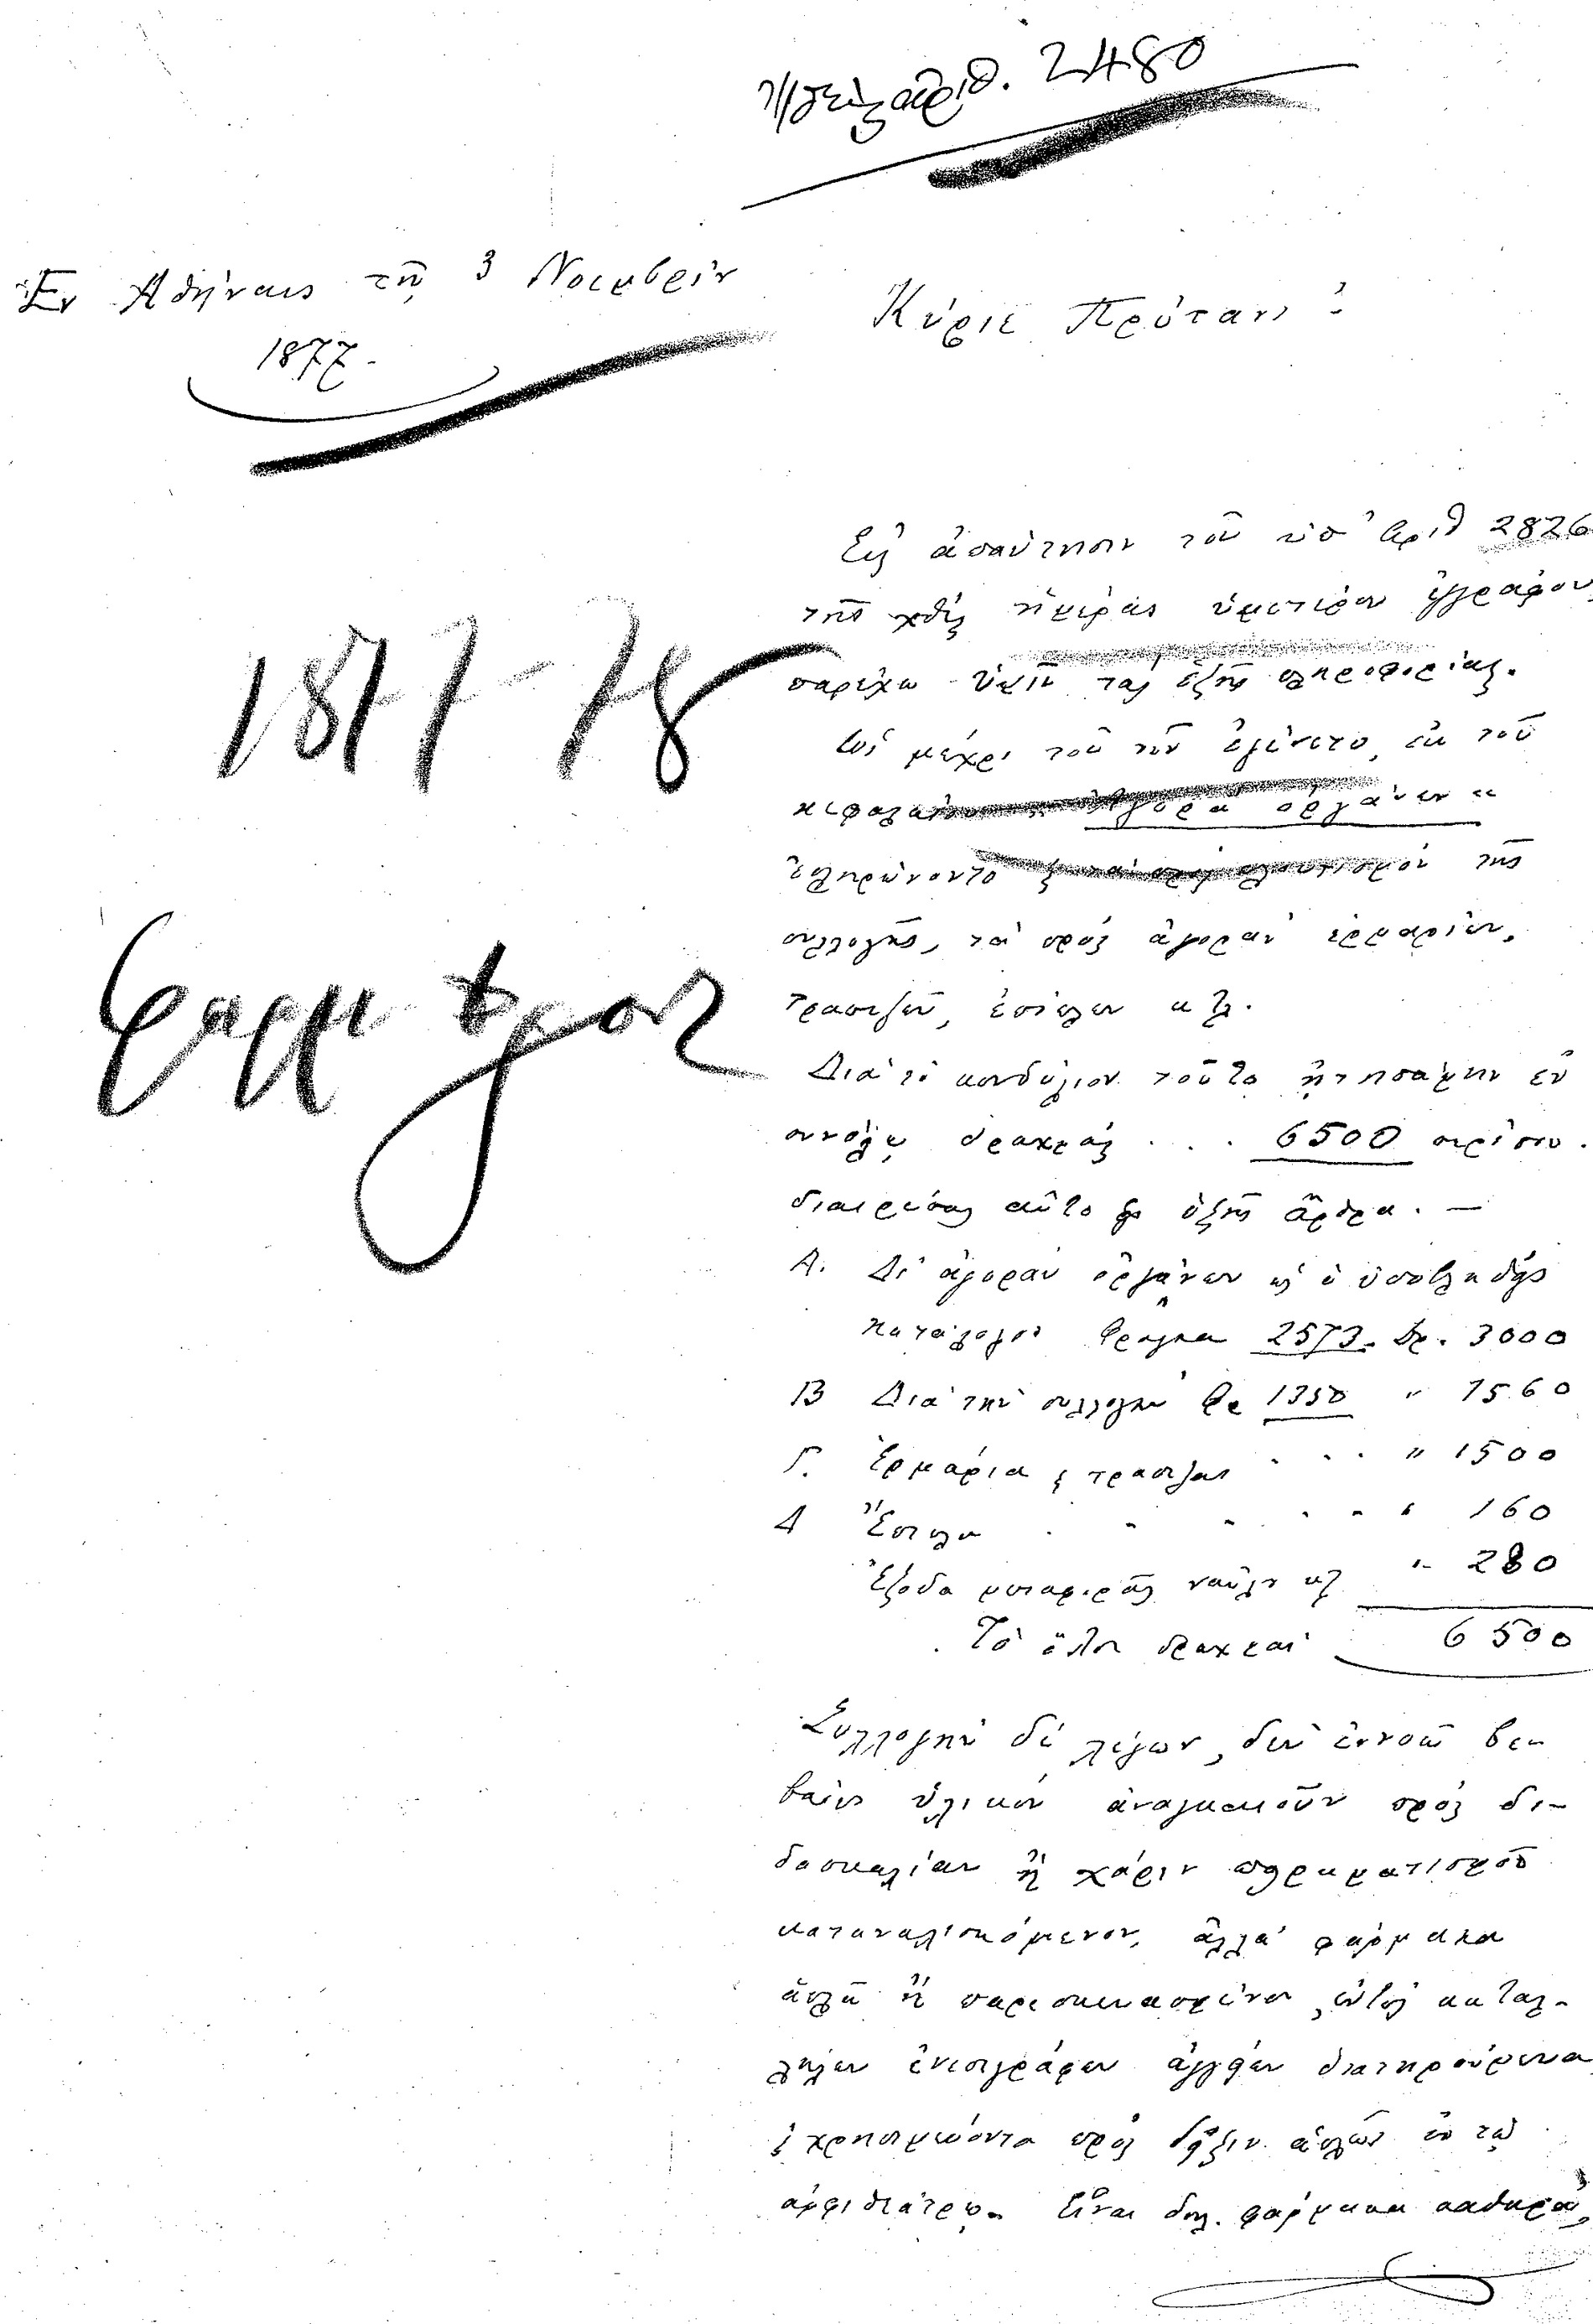 ἀριθ. 2480
Ἐν Ἀθήναις τῇ 3 Νοεμβρίου
1877.
Κύριε Πρύτανι:
Εἰς ἀπάντησιν τοῦ ὑπ' ἀριθ 2826
τῆς χθὲς ἡμέρας ὑμετέρου ἐγγράφου,
παρέχω ὑμῖν τὰς ἑξῆς πληροφορίας.
1877-78
Ὡς μέχρι τοῦ νῦν ἐγένετο, ἐκ τοῦ
κεφαλαίου „Ἀγορὰ ὀργάνων"
ἐπληρώνοντο ϗ τὰ πρὸς πλουτισμὸν τῆς
συλλογῆς, τὰ πρὸς ἀγορὰν ἑρμαρίων,
τραπεζῶν, ἐπίπλων κτλ.
Διὰ τὸ κονδύλιον τοῦτο ᾐτησάμην ἐν
συνόλῳ δραχμὰς . . . 6500 περίπου.
διαιρέσας αὐτὸ εἰς ἑξῆς ἄρθρα. —
Α. Δι' ἀγορὰν ὀργάνων ὡς ὁ ὑποβληθεὶς
κατάλογος Φράγκα 2573. Δρ. 3000
Β Διὰ τὴν συλλογὴν Φρ 1350 " 1560
Γ. Ἑρμάρια ϗ τραπέζας . . . " 1500
Δ Ἔπιπλα . . . . . . " 160
Ἔξοδα μεταφορᾶς ναῦλον κτλ " 280
Τὸ ὅλον δραχμαὶ 6500
Συλλογὴν δὲ λέγων, δὲν ἐννοῶ βε-
βαίως ὑλικὸν ἀναγκαιοῦν πρὸς δι-
δασκαλίαν ἢ χάριν πειραματισμοῦ
καταναλισκόμενον, ἀλλὰ φάρμακα
ἁπλᾶ ἢ παρεσκευασμένα, ἐντὸς καταλ-
λήλων ἐνεπιγράφων ἀγγείων διατηρούμενα
ϗ χρησιμεύοντα πρὸς δεῖξιν ἁπλῶς ἐν τῷ
ἀμφιθεάτρῳ. Εἶναι δηλ. φάρμακα καθαρά,